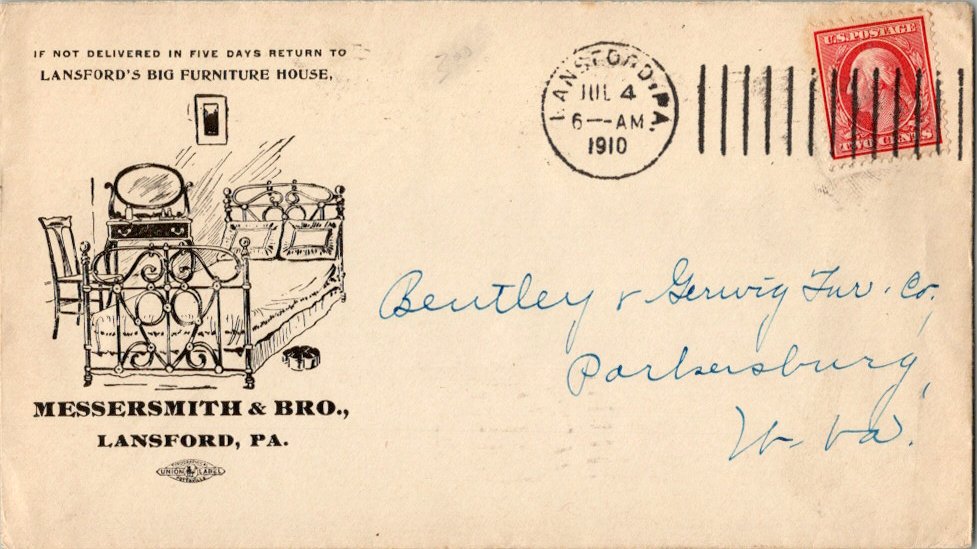 IF NOT DELIVERED IN FIVE DAYS RETURN TO
LANSFORD'S BIG FURNITURE HOUSE,
MESSERSMITH & BRO.,
LANSFORD, PA.
UNION LABEL
LANSFORD, PA.
JUL 4
6—AM
1910
U.S. POSTAGE
TWO CENTS
Bentley & Gerwig Fur. Co,
Parkersburg,
W. Va.